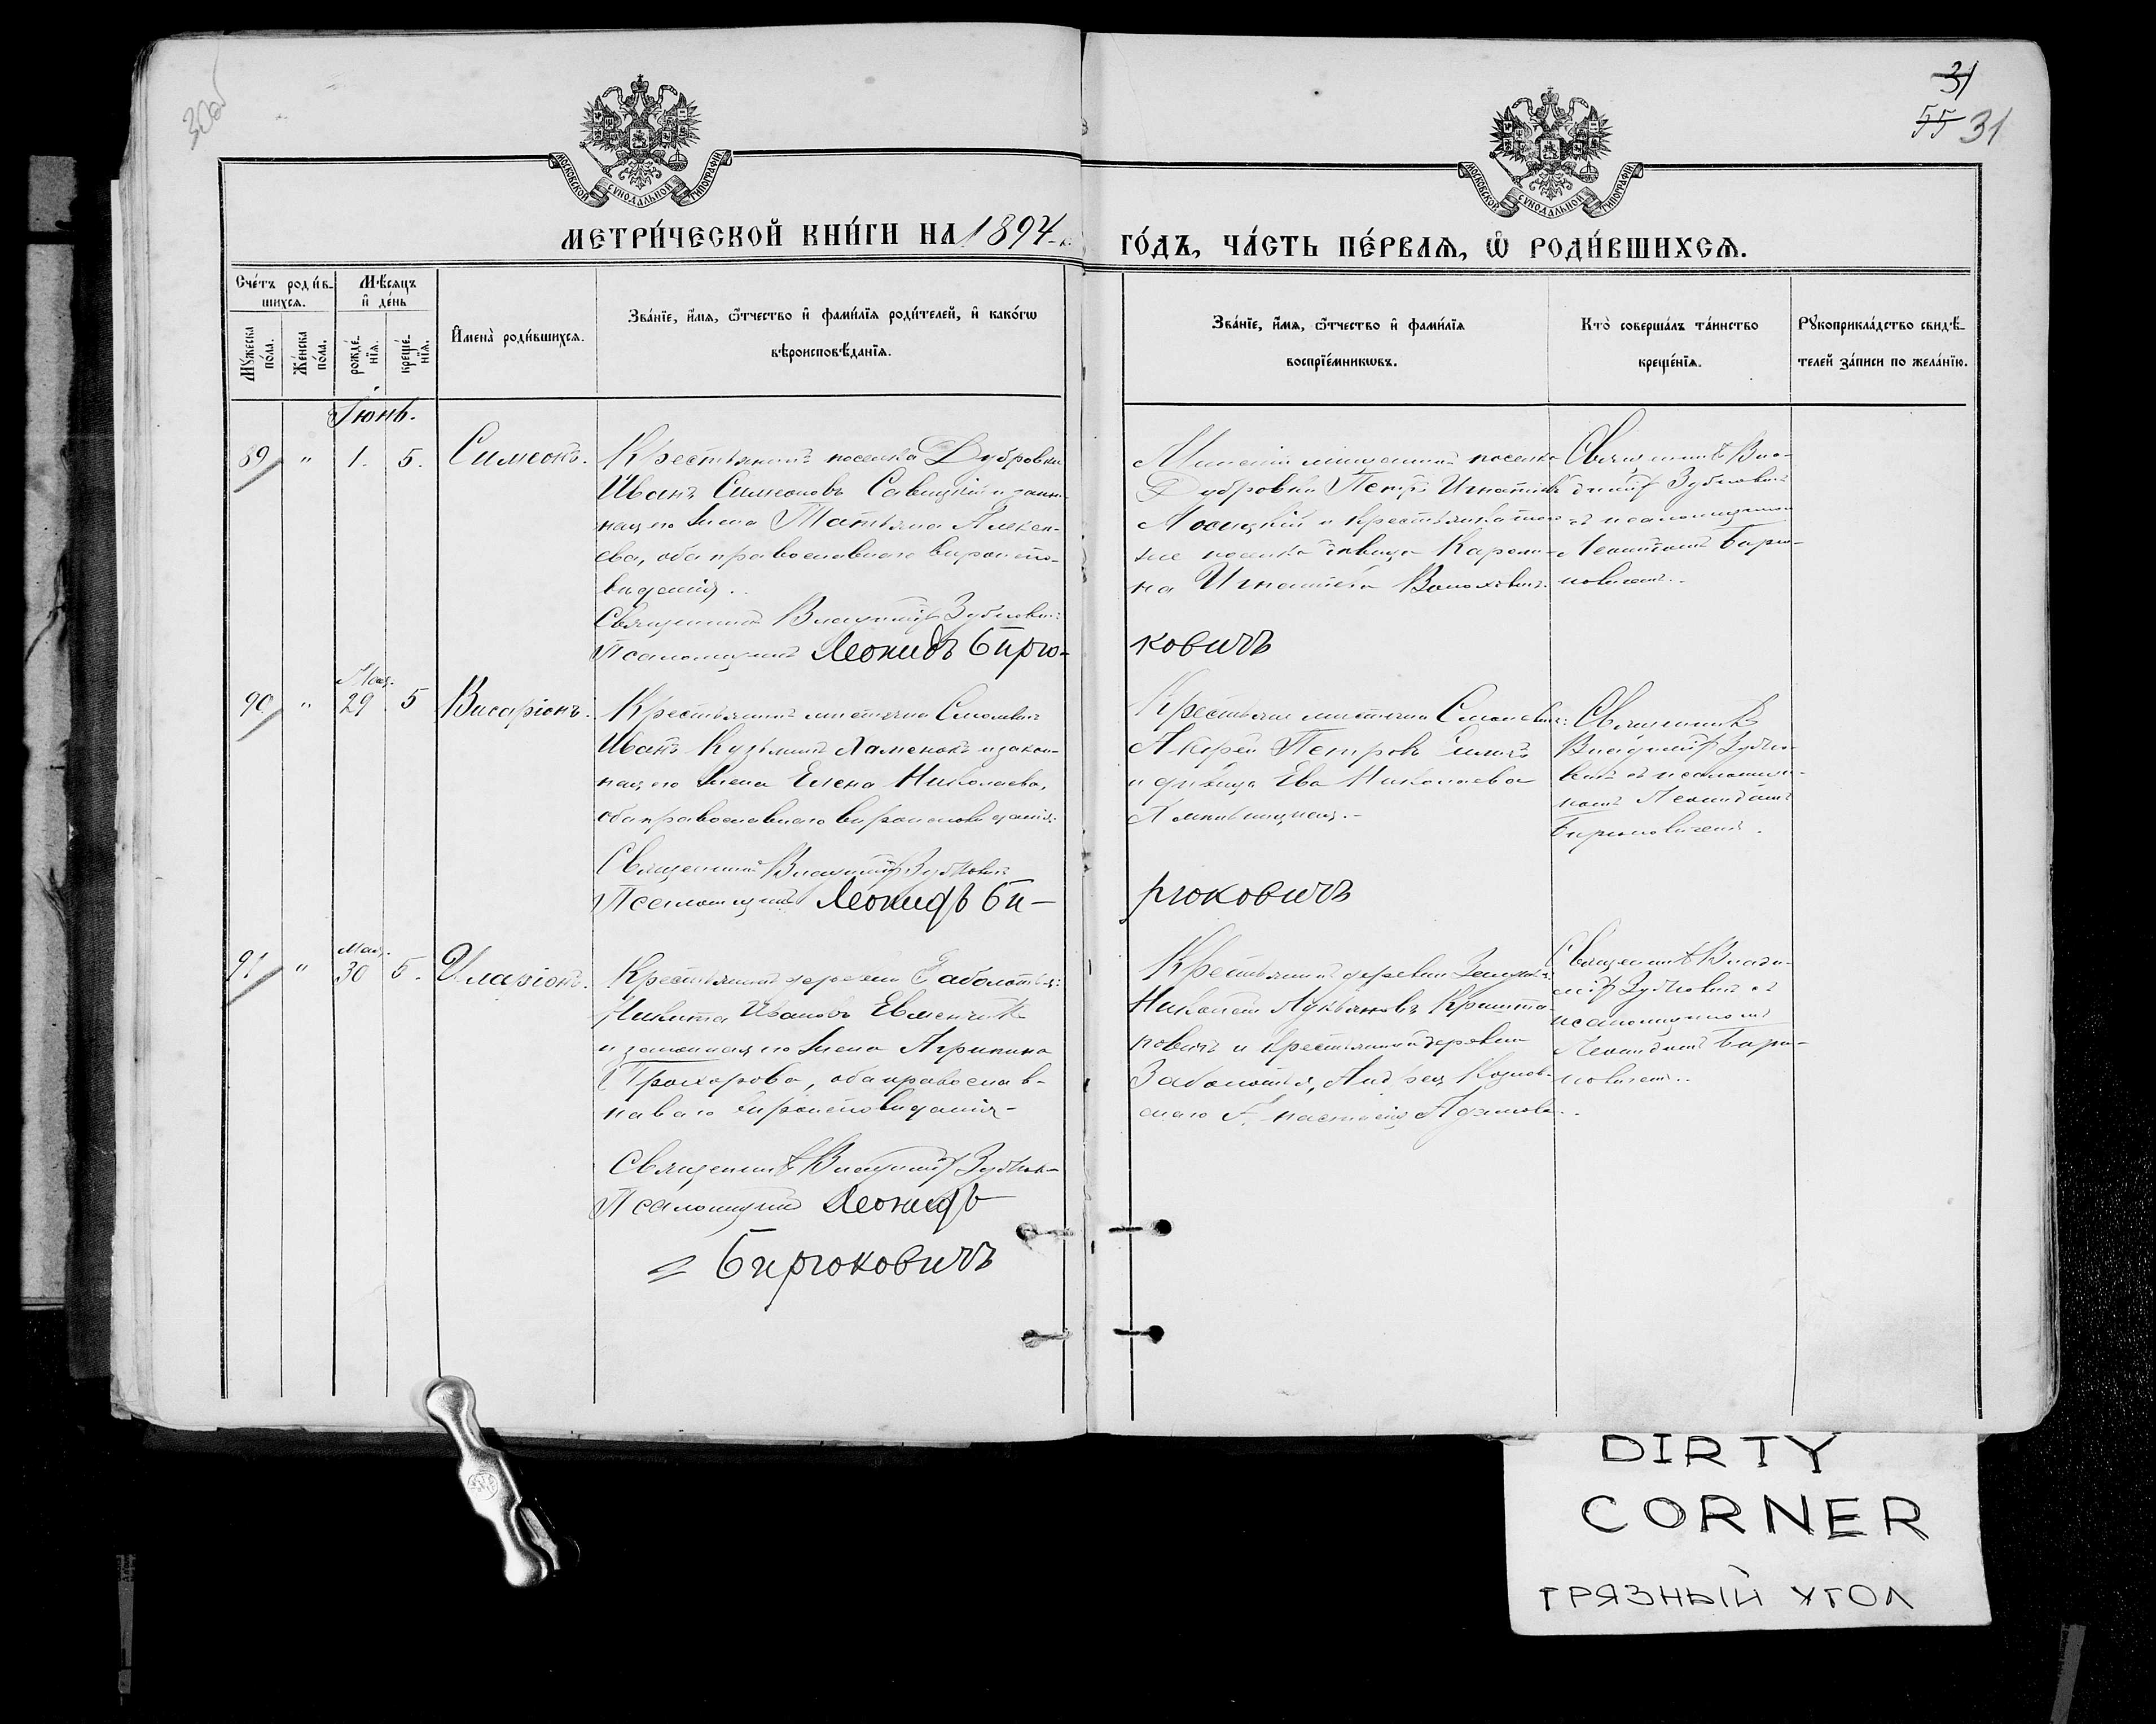 30об
31
55 31
МОСКОВСКОЙ СѴНОДАЛЬНОЙ ТИПОГРАФІИ
МОСКОВСКОЙ СѴНОДАЛЬНОЙ ТИПОГРАФІИ
МЕТРИ́ЧЕСКОЙ КНИ́ГИ НА 1894 г.
ГО́ДЪ, ЧА́СТЬ ПЕ́РВАѦ, Ѡ РОДИ́ВШИХСѦ.
Сче́тъ роди́в-
шихсѧ.
Мꙋ́жеска
по́ла.
Же́нска
по́ла.
Мѣ́сѧцъ
и҆ де́нь
рожде́-
нїѧ.
креще́-
нїѧ.
И҆мена̀ роди́вшихсѧ.
Зва́нїе, и҆́мѧ, ѻ҆́тчество и҆ фами́лїѧ роди́телей, и҆ како́гѡ
вѣроисповѣ́данїѧ.
Зва́нїе, и҆́мѧ, ѻ҆́тчество и҆ фами́лїѧ
воспрїе́мникѡвъ.
Кто̀ соверша́лъ та́инство
креще́нїѧ.
Рꙋкоприкла́дство свидѣ́-
телей за́писи по жела́нїю.
Іюнь.
89 " 1. 5. Симеонъ.
Крестьянинъ поселка Дубровки
Иванъ Симеоновъ Савицкій и закон-
ная его жена Татьяна Алексе-
ева, оба православнаго вѣроиспо-
вѣданія..
Священникъ Владиміръ Зубковичъ
Псаломщикъ Леонидъ Бирю-
Минскій мѣщанинъ поселка
Дубровки Петръ Игнатьевъ
и крестьянка того
же поселка дѣвица Кароли-
на Игнатьева
Священникъ Вла-
диміръ Зубковичъ
съ псаломщикомъ
Леонидомъ Бирю-
ковичемъ..
ковичъ
Мая.
90 " 29 5 Висаріонъ.
Крестьянинъ мѣстечка Смолевичъ
Иванъ Кузьминъ Ламенокъ и закон-
ная его жена Елена Николаева,
оба православнаго вѣроисповѣданія.
Священникъ Владиміръ Зубковичъ
Псаломщикъ Леонидъ Би-
Крестьяне мѣстечка Смолевичъ:
Андрей Петровъ
и дѣвица Ева Николаева
Священникъ
Владиміръ Зубко-
вичъ съ псаломщи-
комъ Леонидомъ
Бирюковичемъ.
рюковичъ
Мая.
91 " 30 5. Иларіонъ.
Крестьянинъ деревни Заболотья:
Никита Ивановъ Евменчикъ
и законная его жена Агрипина
Прохорова, оба православ-
наго вѣроисповѣданія-
Священникъ Владиміръ Зубков-
Псаломщикъ Леонидъ
Бирюковичъ
Крестьянинъ деревни
Николай Лукьяновъ
и крестьянина деревни
Заболотья, Андрея Козлов-
скаго Анастасія Адамова..
Священникъ Влади-
міръ Зубковичъ съ
псаломщикомъ
Леонидомъ Бирю-
ковичемъ..
DIRTY
CORNER
ГРЯЗНЫЙ УГОЛ